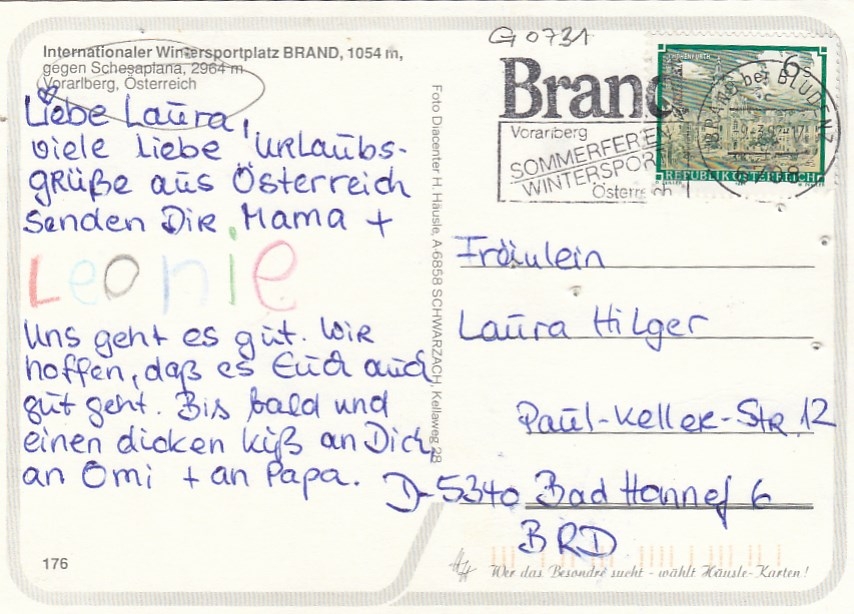 Internationaler Wintersportplatz BRAND, 1054 m,
gegen Schesaplana, 2964 m
Vorarlberg, Österreich
Liebe Laura,
viele liebe Urlaubs-
grüße aus Österreich
senden Dir Mama +
Leonie
Uns geht es gut. Wir
hoffen, daß es Euch auch
gut geht. Bis bald und
einen dicken Kuß an Dich,
an Omi + an Papa.
176
Foto Diacenter H. Häusle, A-6858 SCHWARZACH, Kellaweg 28
G 0731
Brand
Vorarlberg
SOMMERFERIE
WINTERSPOR
Österreich
6 s
BRAND bei BLUDENZ
REPUBLIK ÖSTERREICH
Fräulein
Laura Hilger
Paul-Keller-Str. 12
D-5340 Bad Honnef 6
BRD
Wer das Besondre sucht - wählt Häusle-Karten!